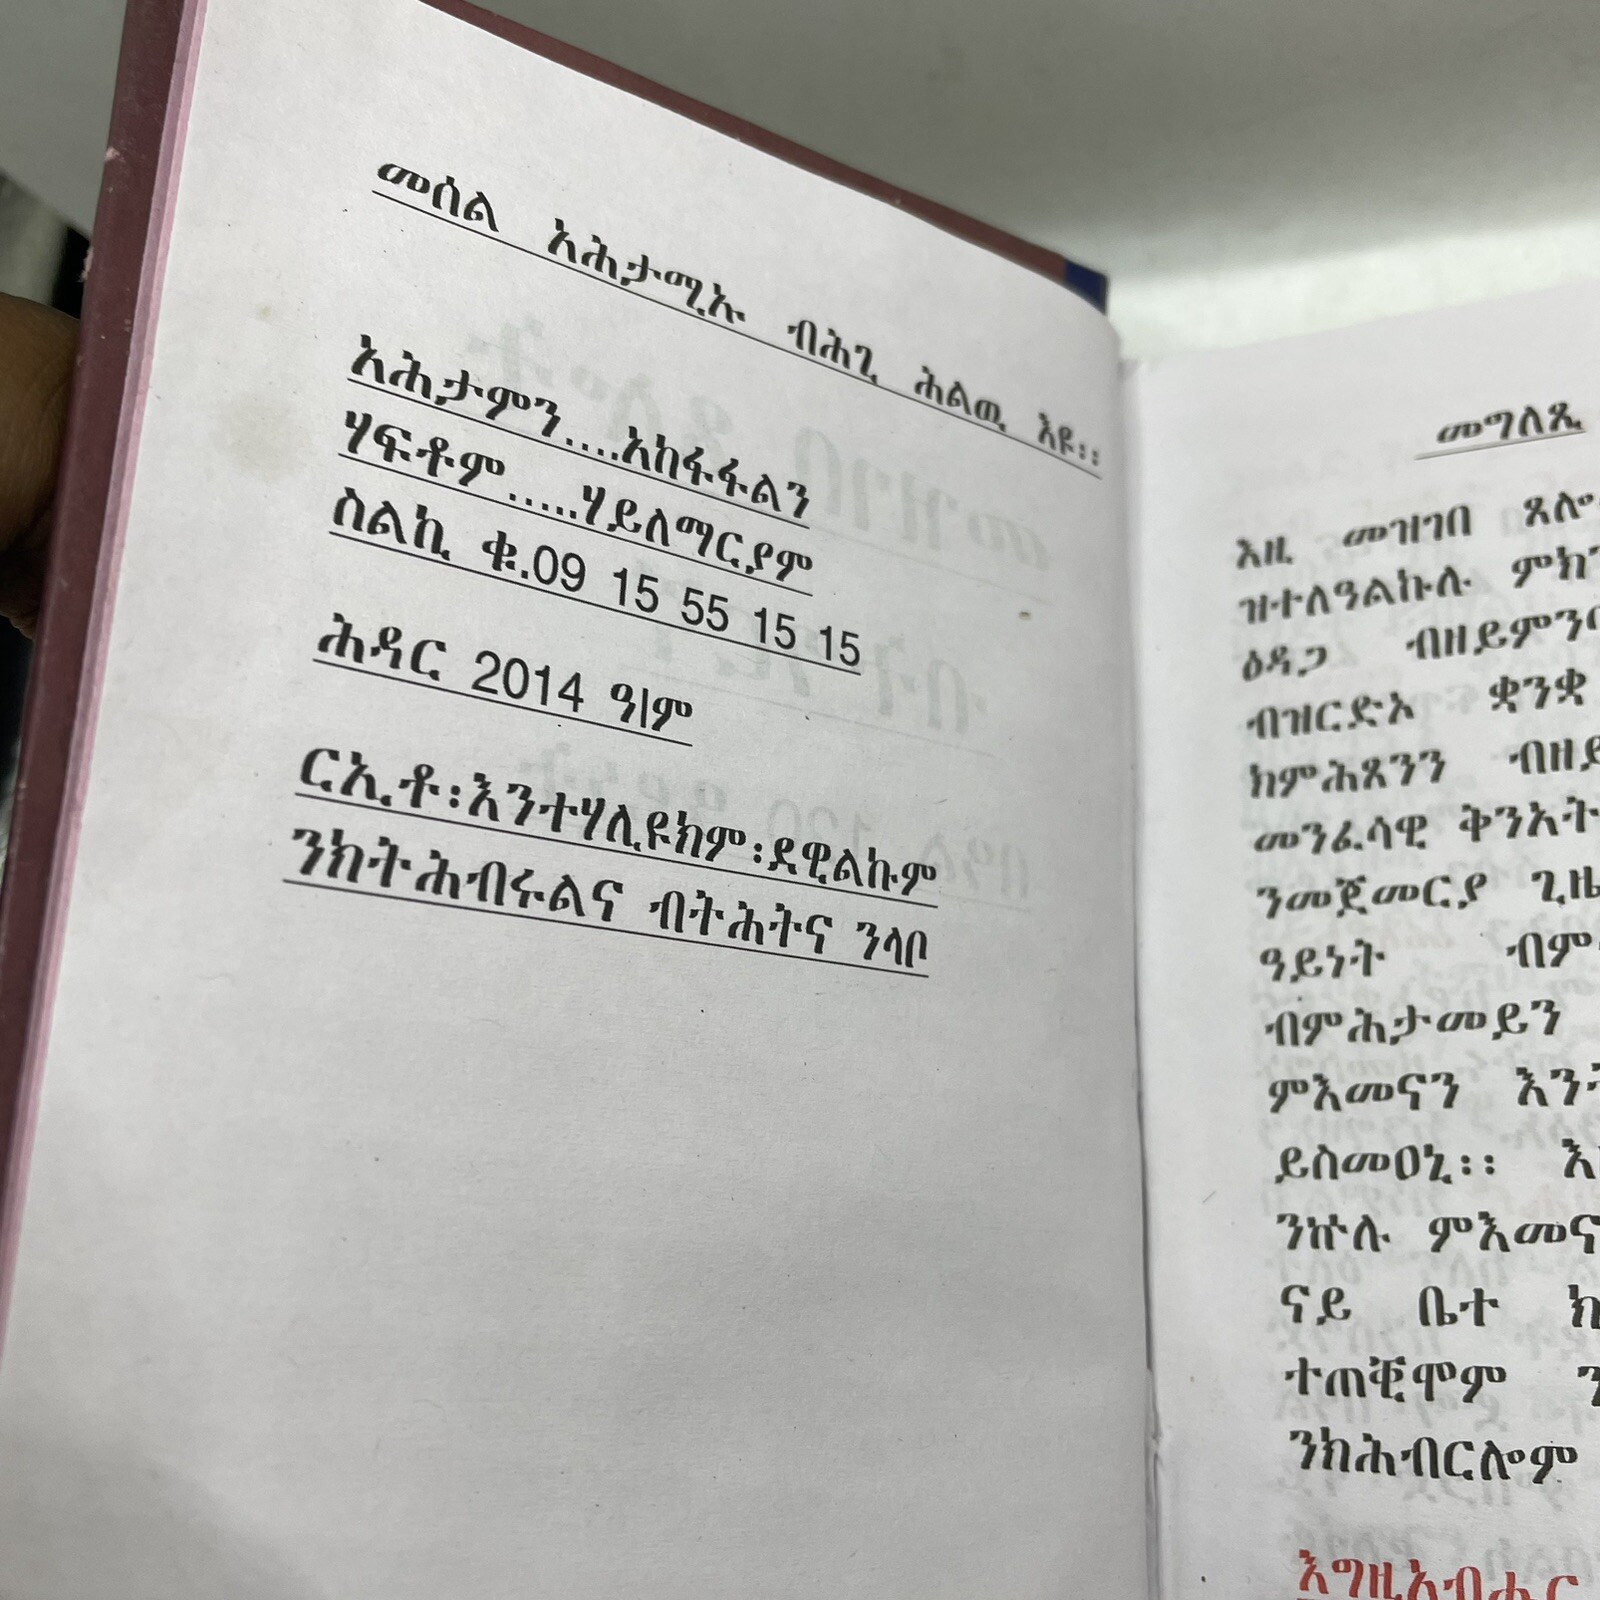 መሰል አሕታሚኡ ብሕጊ ሕልዊ እዩ።
አሕታምን...አከፋፋልን
ሃፍቶም.....ሃይለማርያም
ስልኪ ቁ.09 15 55 15 15
ሕዳር 2014 ዓ/ም
ርኢቶ፡እንተሃሊዩክም፡ደዊልኩም
ንክትሕብሩልና ብትሕትና ንላቦ
መግለጺ
እዚ መዝገበ ጸሎ
ዝተለዓልኩሉ ምክን
ዕዳጋ ብዘይምን
ብዝርድኦ ቋንቋ
ከምሕጸንን ብዘይ
መንፈሳዊ ቅንአት
ንመጀመርያ ጊዜ
ዓይነት ብም
ብምሕታመይን
ምእመናን እን
ይስመዐኒ።
ንኵሉ ምእመና
ናይ ቤተ ክ
ተጠቒሞም ን
ንክሕብርሎም
እግዚአብሔር